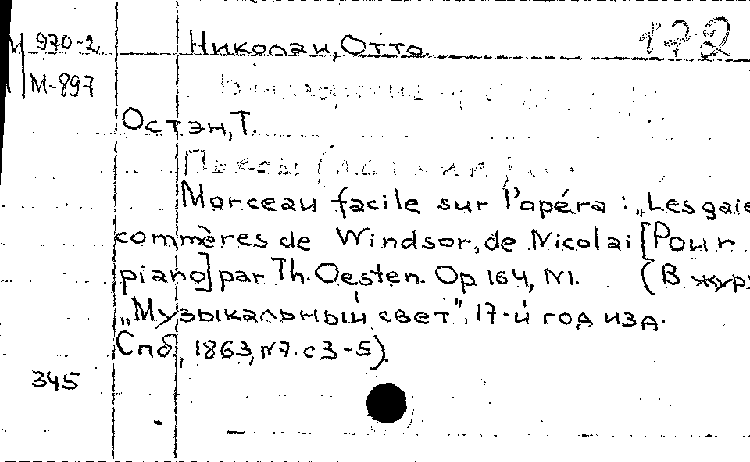 М 930-2 Николаи, Отто 172
М-897
Остэн, Т.
Пьесы
Morceau facile sur l'apéra : „Les gaie
commères de Windsor, de Nicolai [Pour
piano] par Th. Oesten. Op 164, N1. (В жур
„Музыкальный свет", 17-й год изд.
Спб, 1863, N7. с 3-5).
345